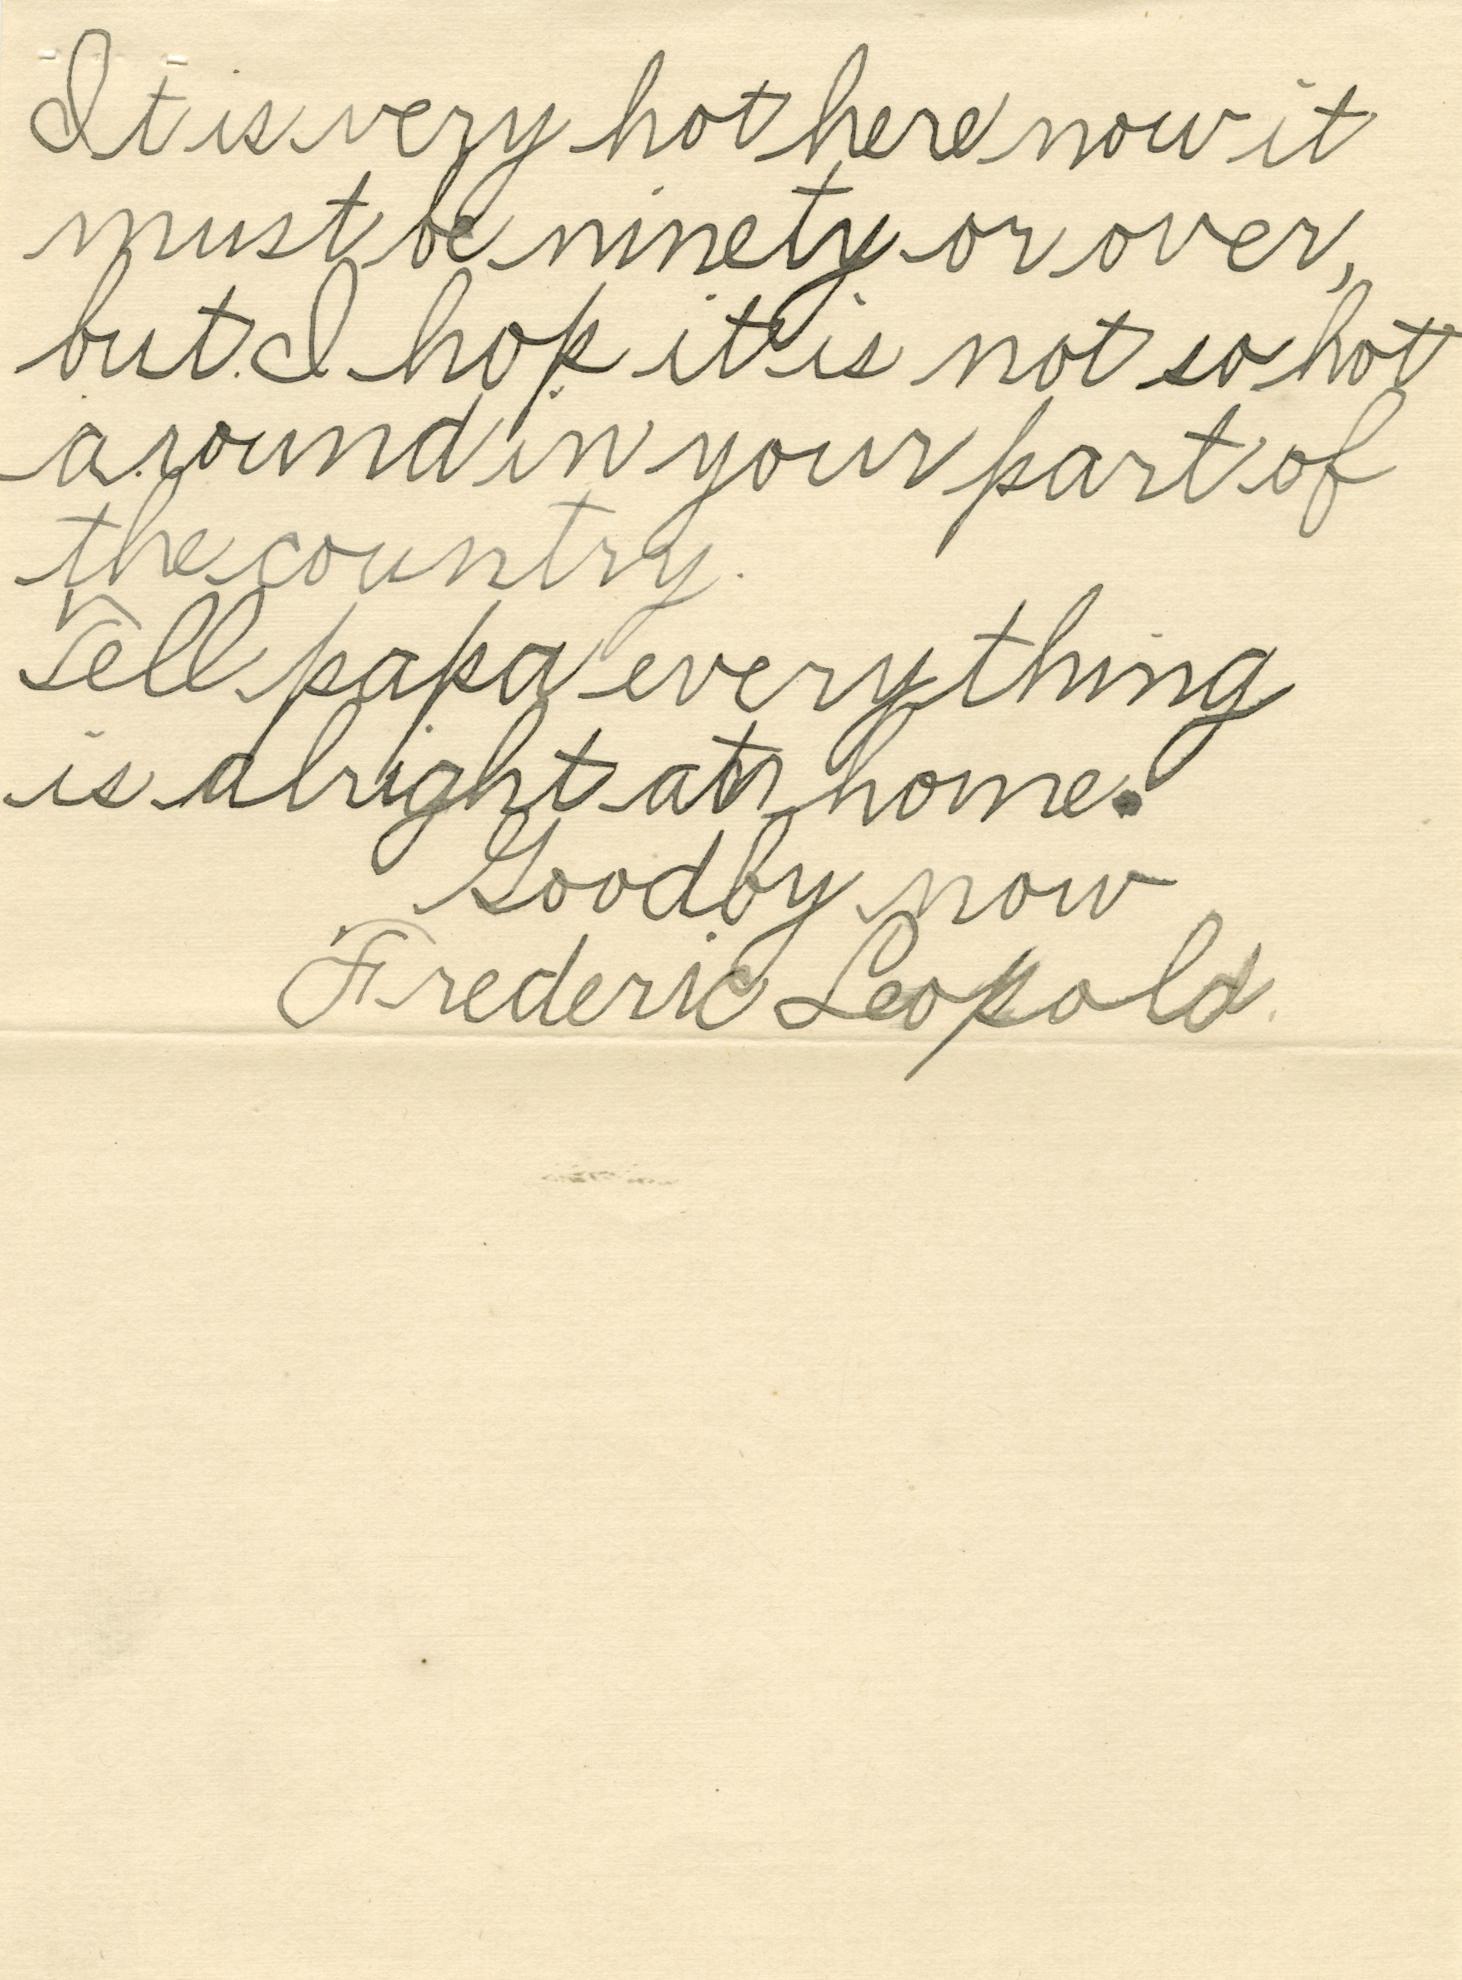 It is very hot here now it
must be ninety or over,
but I hop it is not so hot
around in your part of
the country.
Tell papa everything
is alright at home.
Goodby now
Frederic Leopold.